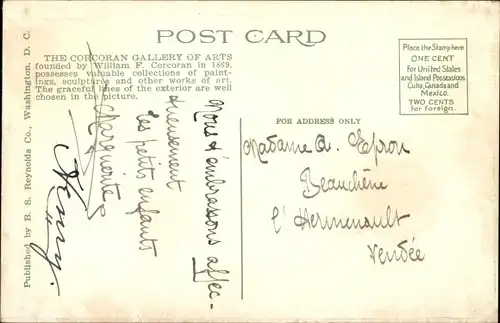 POST CARD
THE CORCORAN GALLERY OF ARTS
founded by William F. Corcoran in 1869.
possesses valuable collections of paint-
ings, sculptures and other works of art.
The graceful lines of the exterior are well
chosen in the picture.
Place the Stamp here
ONE CENT
For United States
and Island Possessions
Cuba, Canada and
Mexico.
TWO CENTS
for Foreign.
Published by B. S. Reynolds Co., Washington, D. C.
Nous t'embrassons affec-
tueusement
Les petits enfants
Marguerite
Henry.
FOR ADDRESS ONLY
Madame A. Epron
Beauchêne
l'Hermenault
Vendée